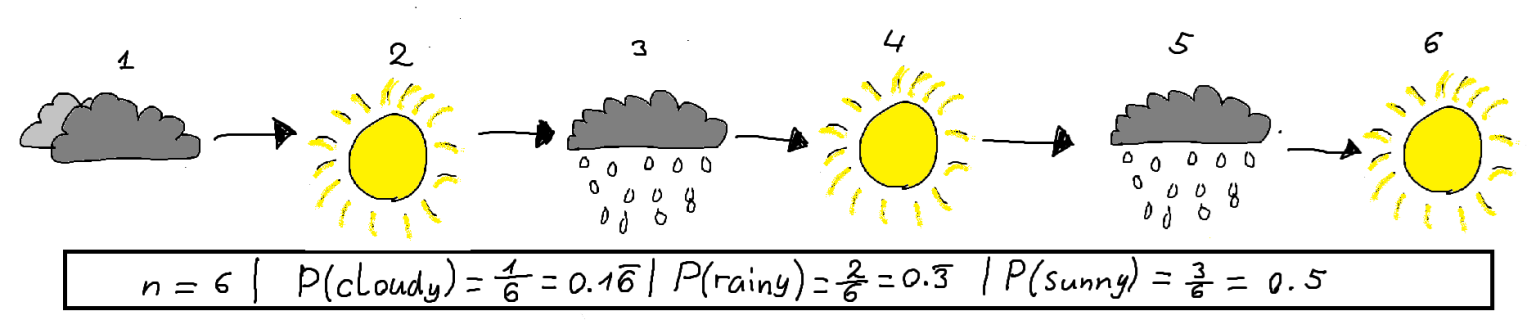 1 2 3 4 5 6
n = 6 | P(cloudy) = 1/6 = 0.16̅ | P(rainy) = 2/6 = 0.3̅ | P(sunny) = 3/6 = 0.5